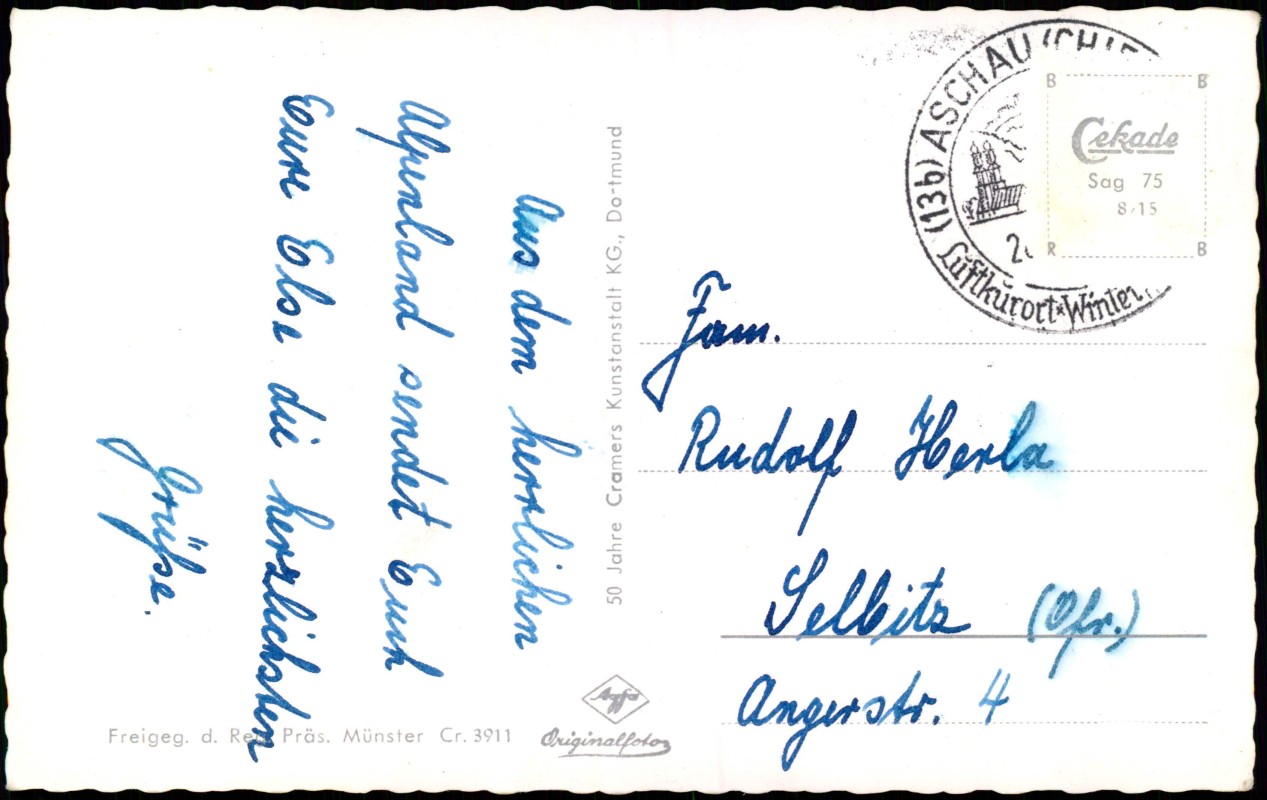 Aus dem herrlichen
Alpenland sendet Euch
Eure Else die herzlichsten
Grüße.
50 Jahre Cramers Kunstanstalt KG., Dortmund
(13b) ASCHAU (CHIE
Luftkurort * Winter
B B
Cekade
Sag 75
8/15
R B
Fam.
Rudolf Herla
Selbitz (Ofr.)
Angerstr. 4
Freigeg. d. Reg. Präs. Münster Cr. 3911
Agfa
Originalfoto